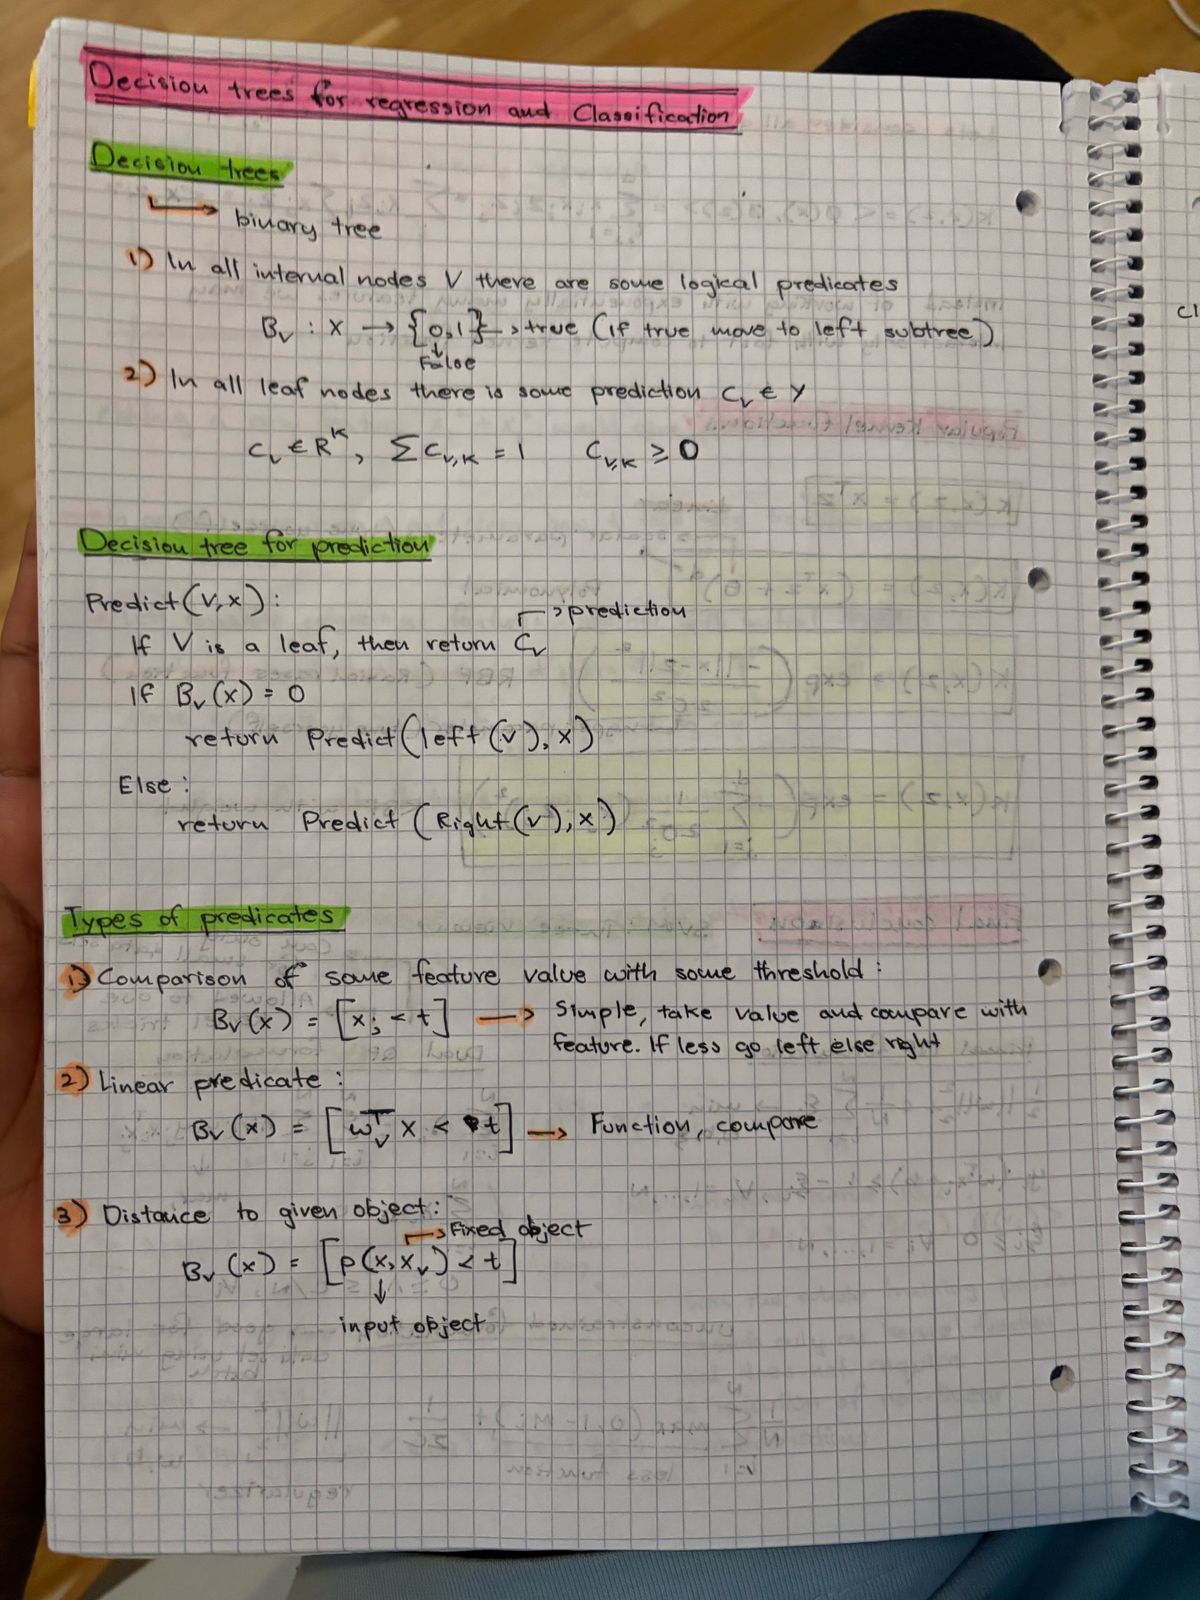 Decision trees for regression and Classification
Decision trees
binary tree
1) In all internal nodes V there are some logical predicates
Bᵥ : X → {0,1} → true (if true move to left subtree)
False
2) In all leaf nodes there is some prediction Cᵥ ∈ Y
Cᵥ ∈ Rᴷ, ∑ C_{v,K} = 1 C_{v,K} ≥ 0
Decision tree for prediction
Predict(V,x):
→ prediction
If V is a leaf, then return Cᵥ
If Bᵥ(x) = 0
return Predict(left(v), x)
Else:
return Predict(Right(v), x)
Types of predicates
1) Comparison of some feature value with some threshold:
Bᵥ(x) = [xⱼ < t] → Simple, take value and compare with
feature. If less go left else right
2) Linear predicate:
Bᵥ(x) = [wᵥᵀ x < t] → Function, compare
3) Distance to given object:
→ Fixed object
Bᵥ(x) = [p(x, xᵥ) < t]
input object